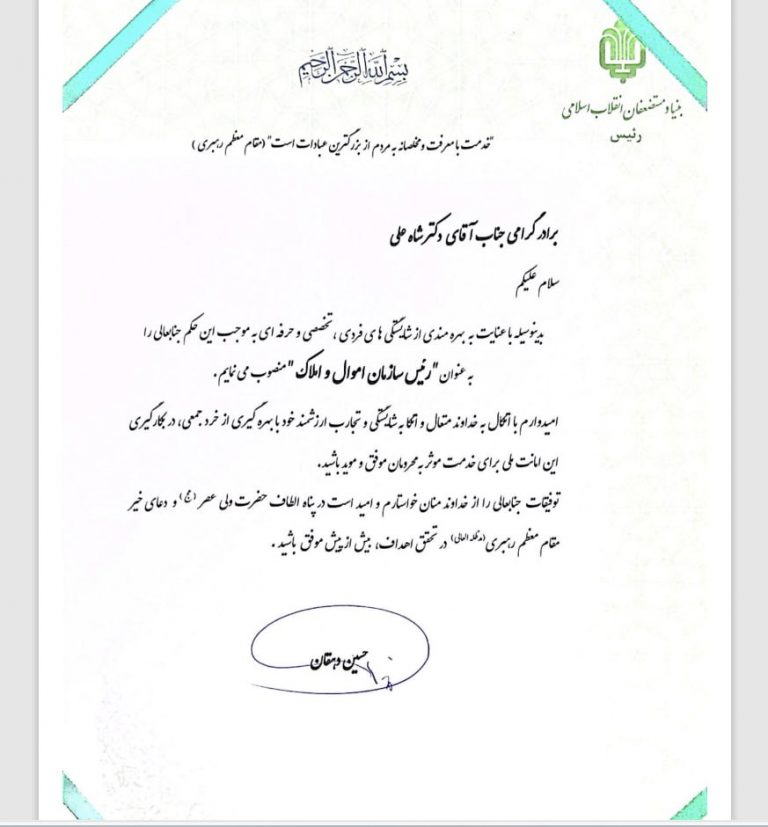 بسم الله الرحمن الرحیم
بنیاد مستضعفان انقلاب اسلامی
رئیس
"خدمت با معرفت و مخلصانه به مردم از بزرگترین عبادات است" (مقام معظم رهبری)
برادر گرامی جناب آقای دکتر شاه علی
سلام علیکم
بدینوسیله با عنایت به بهره مندی از شایستگی های فردی ، تخصصی و حرفه ای به موجب این حکم جنابعالی را
به عنوان "رئیس سازمان اموال و املاک" منصوب می نمایم .
امیدوارم با اتکال به خداوند متعال و اتکا به شایستگی و تجارب ارزشمند خود با بهره گیری از خرد جمعی، در بکارگیری
این امانت ملی برای خدمت موثر به محرومان موفق و موید باشید.
توفیقات جنابعالی را از خداوند منان خواستارم و امید است در پناه الطاف حضرت ولی عصر (عج) و دعای خیر
مقام معظم رهبری (مدظله العالی) در تحقق اهداف، بیش از پیش موفق باشید .
حسین دهقان